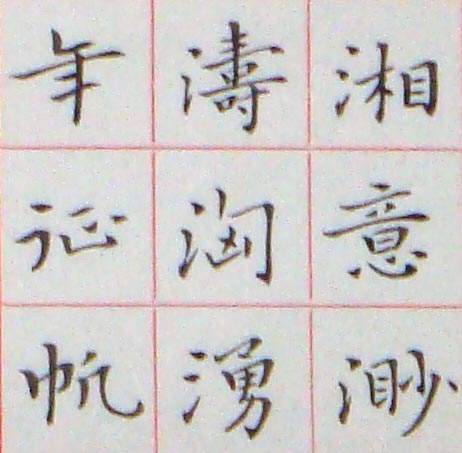 湘意渺
濤洶湧
年征帆